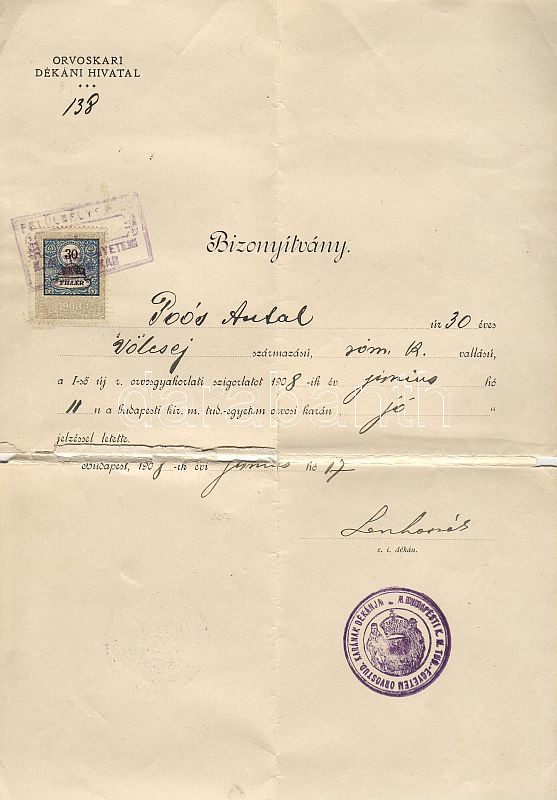 ORVOSKARI
DÉKÁNI HIVATAL
138
30
FILLÉR
Bizonyítvány.
Poós Antal úr 30 éves
Völcsej származású, róm. k. vallású,
a I-ső új r. orvosgyakorlati szigorlatot 1908-ik év június hó
11 n a budapesti kir. m. tud.-egyetem orvosi karán „ jó “
jelzéssel letette.
Budapest, 1908-ik évi június hó 17
Lenhossék
e. i. dékán.
A BUDAPESTI K. M. TUD.-EGYETEM ORVOSTUD. KARÁNAK DÉKÁNJA
darabanth